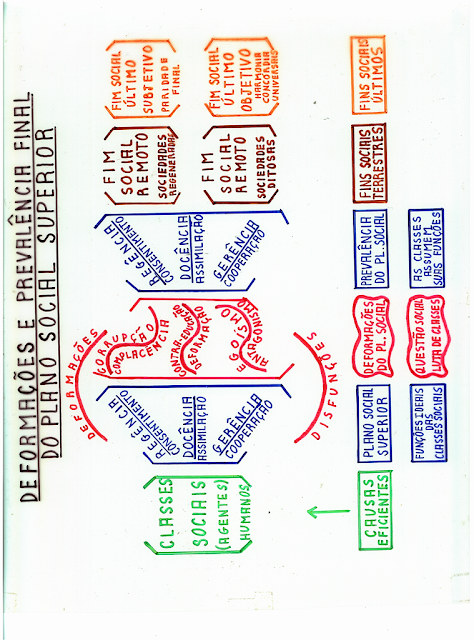 DEFORMAÇÕES E PREVALÊNCIA FINAL
DO PLANO SOCIAL SUPERIOR
CLASSES
SOCIAIS
(AGENTES)
HUMANOS
REGÊNCIA
CONSENTIMENTO
DOCÊNCIA
ASSIMILAÇÃO
GERÊNCIA
COOPERAÇÃO
DEFORMAÇÕES
CORRUPÇÃO
COMPLACÊNCIA
CONTRA-EDUCAÇÃO
DEFORMAÇÃO
EGOÍSMO
ANTAGONISMO
DISFUNÇÕES
REGÊNCIA
CONSENTIMENTO
DOCÊNCIA
ASSIMILAÇÃO
GERÊNCIA
COOPERAÇÃO
FIM
SOCIAL
REMOTO
SOCIEDADES
REGENERADAS
FIM
SOCIAL
REMOTO
SOCIEDADES
DITOSAS
FIM SOCIAL
ÚLTIMO
SUBJETIVO
PARIDADE
FINAL
FIM SOCIAL
ÚLTIMO
OBJETIVO
HARMONIA
CONCÓRDIA
UNIVERSAIS
CAUSAS
EFICIENTES
PLANO SOCIAL
SUPERIOR
DEFORMAÇÕES
DO PL. SOCIAL
PREVALÊNCIA
DO PL. SOCIAL
FINS SOCIAIS
TERRESTRES
FINS SOCIAIS
ÚLTIMOS
FUNÇÕES IDEAIS
DAS
CLASSES SOCIAIS
QUESTÃO SOCIAL
LUTA DE CLASSES
AS CLASSES
ASSUMEM
SUAS FUNÇÕES